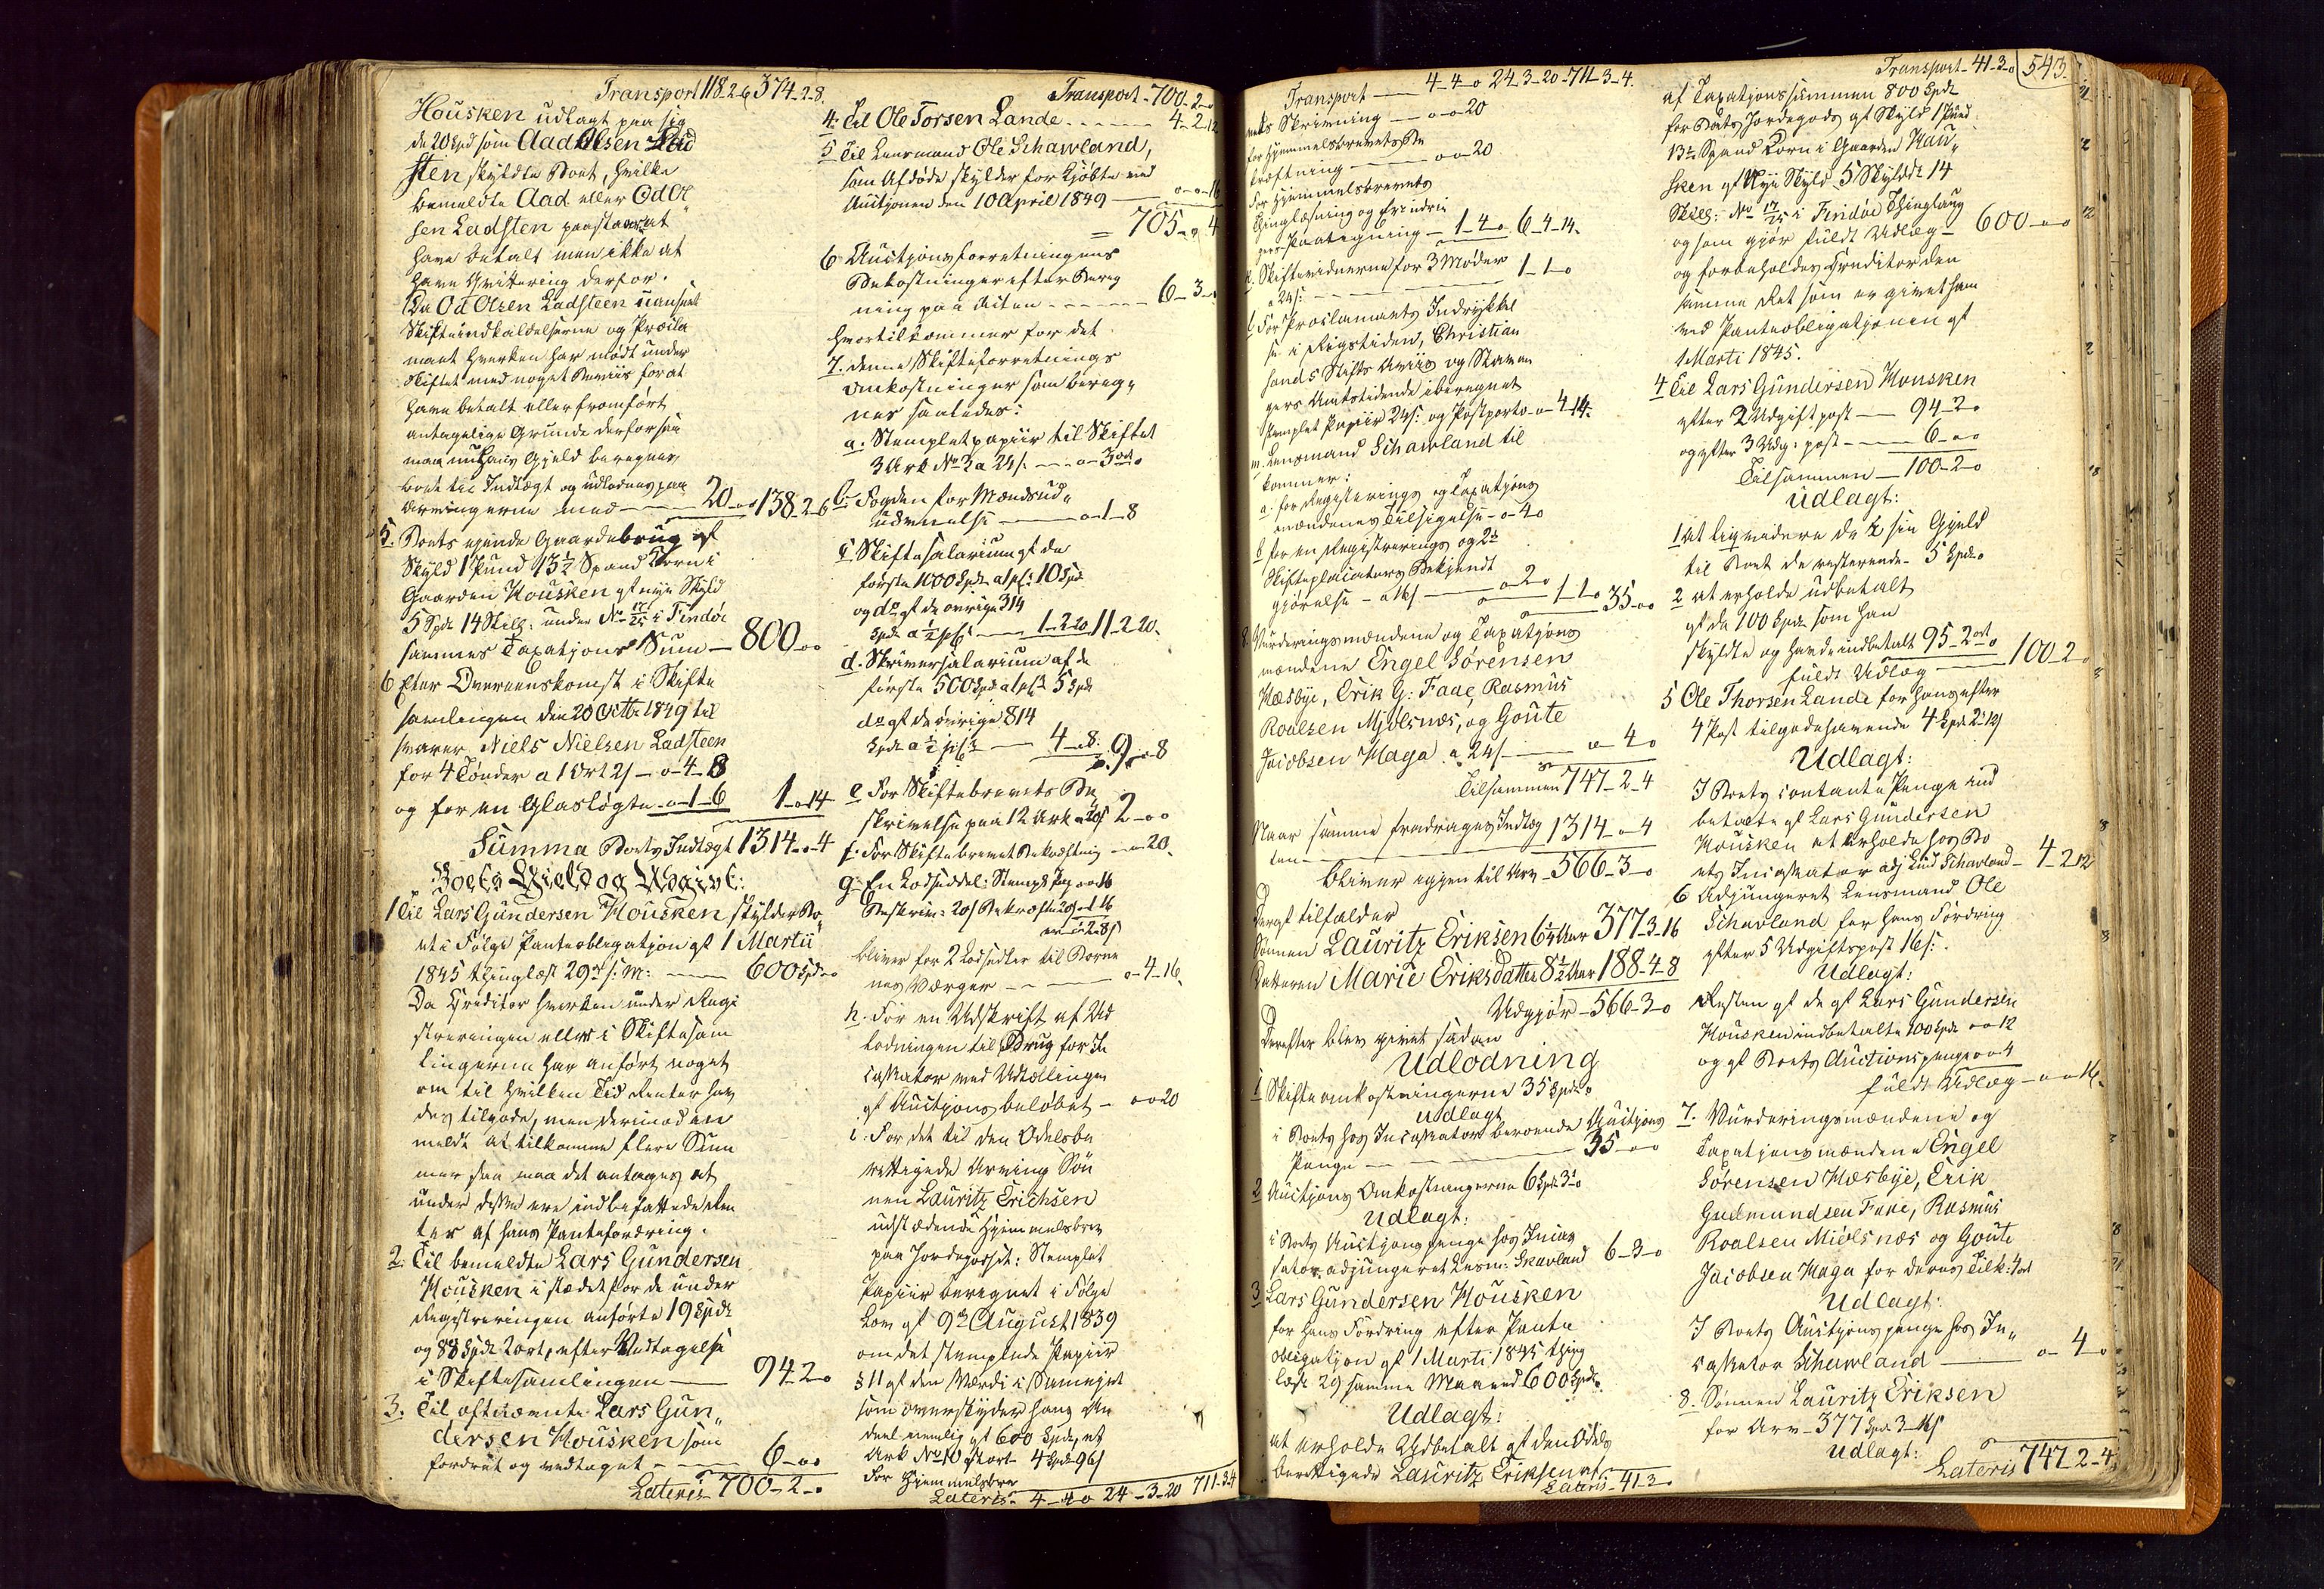 Transport 118-2-6 374-2-8.
Housken udlagt paa sig
de 20 Spd som Aad Olsen Lad
sten skyldte Boet, hvilke
bemeldte Aad eller Od Ol
sen Ladsten paastaar at
have betalt men ikke at
have Qvittering derfor.
Da Od Olsen Ladsteen uanseet
Skifteindkaldelserne og Procla
mant hverken har mødt under
Skiftet med noget Beviis for at
have betalt eller fremført
antagelige Grunde derfor saa
maa nu hans Gjeld beregnes
Boet til Indtægt og udlodnes paa
Arvingerne med — 20-o-o 138-2-6
5. Boets eiende Gaardebrug af
Skyld 1 Pund 13½ Spand Korn i
Gaarden Housken af nye Skyld
5 Spdr 14 Skill: under No 17/25 i Findøe
sammes Taxations Sum — 800-o-o
6 Efter Overeenskomst i Skifte
samlingen den 20 Octbr 1849 til
svarer Niels Nielsen Ladsteen
for 4 Tønder a 1 Ort 2s — o-4-8
og for en Glasløgte - o-1-6 1-o-14
Summa Boets Indtægt 1314-o-4
Boets Gield og Udgivt:
1 Til Lars Gundersen Housken skylder Bo,,
et i Følge Panteobligation af 1 Martii
1845 thinglæst 29de s: M: — 600 Spd-o
Da Creditor hverken under Regi
streringen eller i Skiftesam
lingerne har anført noget
om til hvilken Tid Renter hav
des tilgode, men derimod an
meldt at tilkomme flere Sum
mer saa maa det antages at
under disse ere indbefattede Ren
ter af hans Pantefordring.
2. Til bemeldte Lars Gundersen
Housken i stædet for de under
Registreringen anførte 19 Spdr
og 88 Spdr 2 ort, efter Vedtagelse
i Skiftesamlingen — 94-2-o
3. Til oftnævnte Lars Gun,,
dersen Housken som
fordret og vedtaget - — 6-o-o
Lateris 700-2-o
Transport - 700-2-o
4. Til Ole Torsen Lande - - - - - 4-2-12
5 Til Lensmand Ole Schawland,
som Afdøde skylder for Kjøbte ved
Auctionen den 10 April 1849 — o-o-16
= 705-o-4
6 Auctionsforretningens
Bekostninger efter Bereg
ning paa Acten - - - - - 6-3-o
hvortil kommer for det
7. denne Skifteforretnings
Omkostninger som bereg,,
nes saaledes:
a. Stempletpapiir til Skiftet
3 Ark No 3 a 24s. — o-3 ort o
b Fogden for Mændsud,,
udnævnelse — o-1-8
c Skiftesalarium af de
første 1000 Spdr a 1 pC: 10 Spd
og do af de øvrige 314
Spdr a ½ pC — 1-2-20 11-2-20.
d. Skriversalarium af de
første 500 Spdr a 1 pCt 5 Spdr
do af de øvrige 814
Spdr a ½ pCt — 4-o-8. 9-o-8
e For Skiftebrevets Be
skrivelse paa 12 Ark a 20s 2-o-o
f. For Skiftebrevet Bekræftning - o-o-20.
g. En Lodseddel: Stempl Pap o-o-16
Beskriv: 20s Bekræfte 20s o-1-16
er o-2-8s
bliver for 2 Lodsedler til Børne
nes Værger - - — o-4-16.
h. For en Udskrift af Ud
lodningen til Brug for In
cassator ved Udtællingen
af Auctionsbeløbet - o-o-20
i. For det til den Odelsbe
rettigede Arving Søn
nen Lauritz Erichsen
udstædende Hjemmelsbrev
paa Jordegodset: Stemplet
Papiir beregnet i Følge
Lov af 9de August 1839
om det stemplede Papiir
§ 11 af den Værdi i Sameiet
som overskyder hans An
deel nemlig af 600 Spdr, et
Ark No 10 stort 4 Spdr 96s
For Hjemmelsbre
Lateris - 4-4-o 24-3-20 711-3-4
Transport — 4-4-o 24-3-20 - 711-3-4.
vets Skrivning — o-o-20
for Hjemmelsbrevets Be
kræftning — o-o-20
For Hjemmelsbrevets
Thinglæsning og Erindrin
gers Paategning - 1-4-o 6-4-14.
k. Skiftevidnerne for 3 Møder
a 24s: - — 1-1-o
l. For Proclamaets Indrykkel
se i Rigstiden, Christian
sands Stifts Aviis og Stavan
gers Amtstidende iberegnet
Stemplet Papiir 24s: og Postporto - o-4-14.
m. Lensmand Schawland til
kommer:
a. for Registrerings og Taxations
mændenes Tilsigelse - o-4-o
b for en Registrerings og 2de
Skifteplacaters Bekjendt
gjørelse - a 16s — o-2-o 1-1-o 35-o-o
8. Vurderingsmændene og Taxations
mændene Engel Sørensen
Hæsbye, Erik G: Faae, Rasmus
Roalsen Mjølsnæs, og Goute
Jacobsen Haga. a 24s — o-4-o
Tilsammen 747-2-4
Naar samme fradrages Indtæg
ten - — 1314-o-4
bliver igjen til Arv - 566-3-o
deraf tilfalder
Sønnen Lauritz Eriksen 6¼ Aar 377-3-16
Datteren Marie Eriksdatter 8½ Aar 188-4-8
Udgjør - 566-3-o
Derefter blev givet sådan
Udlodning
1 Skifteomkostningerne 35 Spdr o
Udlagt
i Boets hos Incassator beroende Auctions
Penge — — 35-o-o
2 Auctions Omkostningerne 6 Spdr 3 ort o
Udlagt:
i Boets Auctionspenge hos Incas
sator adjungeret Lensm: Skavland 6-3-o
3 Lars Gundersen Housken
for hans Fordring efter Pante
Obligation af 1 Marti 1845 thing
læst 29 samme Maaned 600 Spdr.
Udlagt:
at erholde Udbetalt af den Odels
berettigede Lauritz Eriksen at
Lateris - 41-3-o
Transport - 41-3-o 543.
af Taxationssummen 800 Spdr
for Boets Jordegods af Skyld 1 Pund
13½ Spand Korn i Gaarden Hau,,
sken af Nye Skyld 5 Skylddr 14
Skill: No 17/25 i Findøe Thinglaug
og som gjør fuldt Udlæg - 600-o-o
og forbeholdes Creditor den
samme Ret som er givet ham
ved Panteobligationen af
1 Marti 1845.
4 Til Lars Gundersen Housken
efter 2 Udgiftpost — 94-2-o
og efter 3 Udg: post - — 6-o-o
Tilsammen — 100-2-o
Udlagt:
1 at liqvidere de i sin Gjeld
til Boet de resterende - 5 Spdr o
2 at erholde udbetalt
af de 100 Spdr som han
skyldte og havde indbetalt 95-2 ort o
fuldt Udlæg — 100-2-o
5 Ole Thorsen Lande for hans efter
4 Post tilgodehavende 4 Spdr 2 ort 12s
Udlagt:
I Boets contante Penge ind
betalte af Lars Gundersen
Housken at erholde hos Bo
ets Incassator adj Lmd Schavland - 4-2-12
6 Adjungeret Lensmand Ole
Schavland for hans Fordring
efter 5 Udgiftspost 16s:
Udlagt:
Resten af de af Lars Gundersen
Housken indbetalte 100 Spdr o-o-12
og af Boets Auctionspenge o-o-4
fuldt Udlæg - o-o-16.
7. Vurderingsmændene og
Taxationsmændene Engel
Sørensen Hæsbye, Erik
Gudmundsen Faae, Rasmus
Roalsen Miølsnæs og Goute
Jacobsen Haga for deres Tilk: 4 ort
Udlagt:
I Boets Auctionspenge hos In,,
cassator Schawland — o-4-o
8. Sønnen Lauritz Eriksen
for Arv - 377 Spdr 3-16s
Udlagt:
Lateris 747-2-4